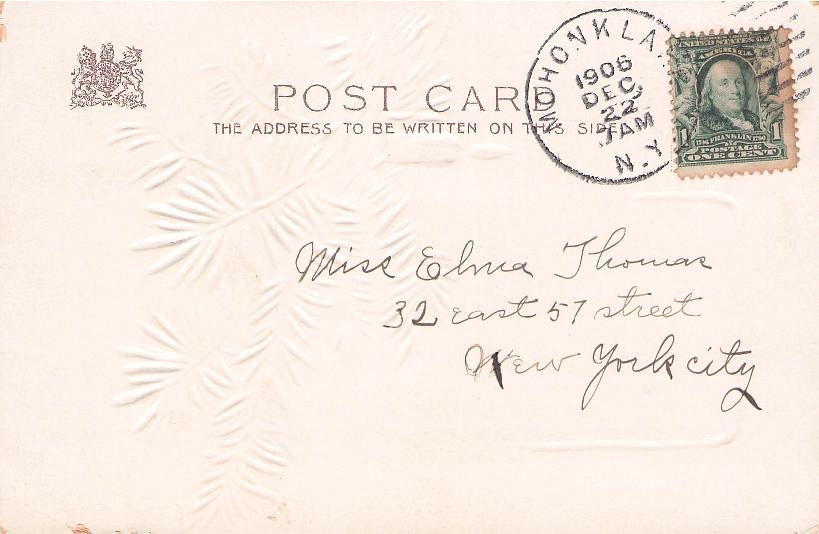 MOHONK LA
1906
DEC
22
7 AM
N.Y.
UNITED STATES OF
AMERICA
1
B. FRANKLIN 1790
1
POSTAGE
ONE CENT
POST CARD
THE ADDRESS TO BE WRITTEN ON THIS SIDE
Miss Elma Thomas
32 east 57 street
New York city